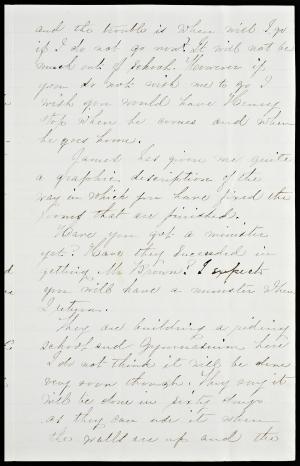 and the trouble is when will I go
if I do not go now? It will not be
much out of school. However if
you do not wish me to go I
wish you would have Henry
stop when he comes and when
he goes home.
James has given me quite
a graphic description of the
way in which you have fixed the
rooms that are finished.
Have you got a minister
yet? Have they succeeded in
getting Mr Brown? I expect
you will have a minister when
I return.
They are building a riding
school and gymnasium here
I do not think it will be done
very soon though. They say it
will be done in sixty days
as they can use it when
the walls are up and the